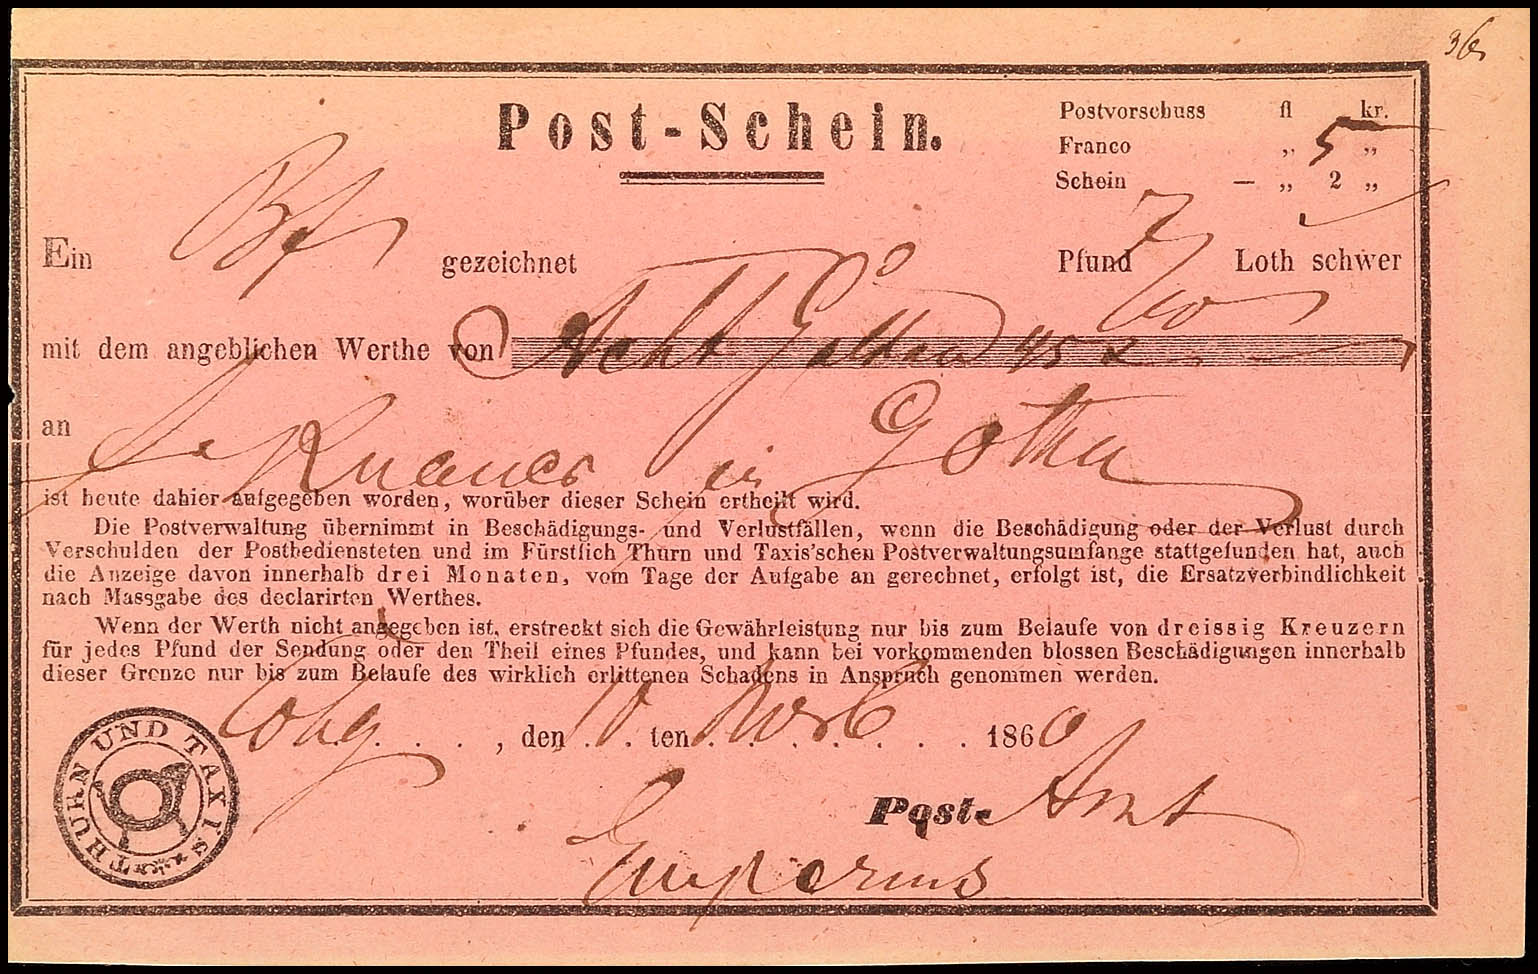 36
Post-Schein.
Postvorschuss fl kr.
Franco „ 5 „
Schein — „ 2 „
Ein Bf gezeichnet Pfund 7/10 Loth schwer
mit dem angeblichen Werthe von Acht Gulden 45 x
an Knauer in Gotha
ist heute dahier aufgegeben worden, worüber dieser Schein ertheilt wird.
Die Postverwaltung übernimmt in Beschädigungs- und Verlustfällen, wenn die Beschädigung oder der Verlust durch
Verschulden der Postbediensteten und im Fürstlich Thurn und Taxis'schen Postverwaltungsumfange stattgefunden hat, auch
die Anzeige davon innerhalb drei Monaten, vom Tage der Aufgabe an gerechnet, erfolgt ist, die Ersatzverbindlichkeit
nach Massgabe des declarirten Werthes.
Wenn der Werth nicht angegeben ist, erstreckt sich die Gewährleistung nur bis zum Belaufe von dreissig Kreuzern
für jedes Pfund der Sendung oder den Theil eines Pfundes, und kann bei vorkommenden blossen Beschädigungen innerhalb
dieser Grenze nur bis zum Belaufe des wirklich erlittenen Schadens in Anspruch genommen werden.
Cobg. . . . , den 10. ten . . . . . . . 1860
THURN UND TAXIS
Post-Amt